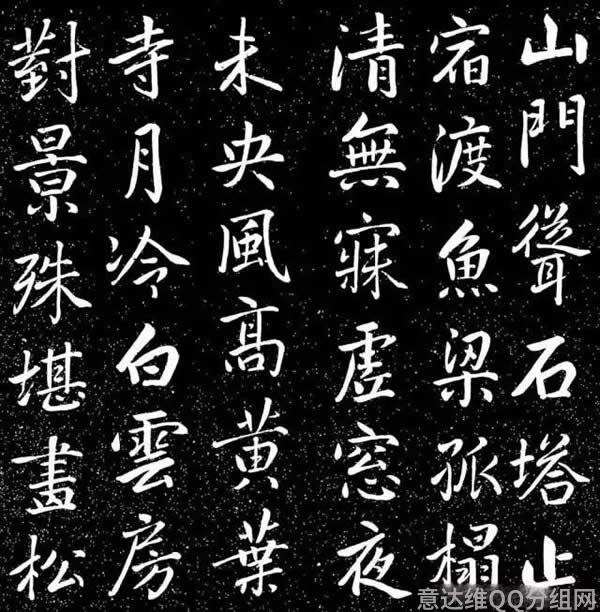 山門聳石塔止
宿渡魚梁孤榻
清無寐虛窓夜
未央風高黃葉
寺月冷白雲房
對景殊堪畫松
意达维QQ分组网